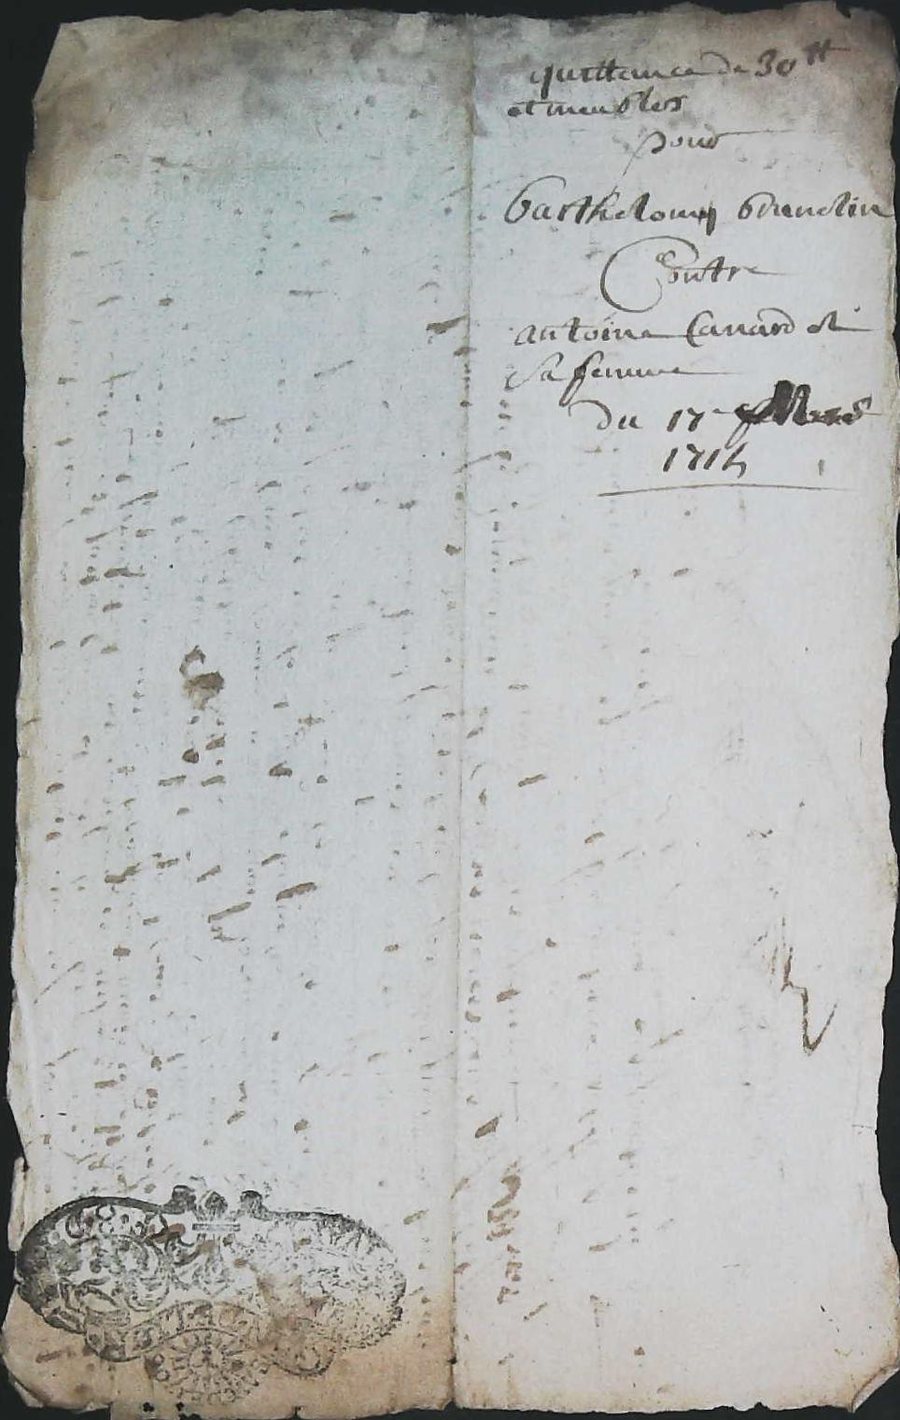 quittance de 30 tt
et meubles
pour
barthelomy brunelin
Contre
antoine Canard et
sa femme
du 17e Mars
1714